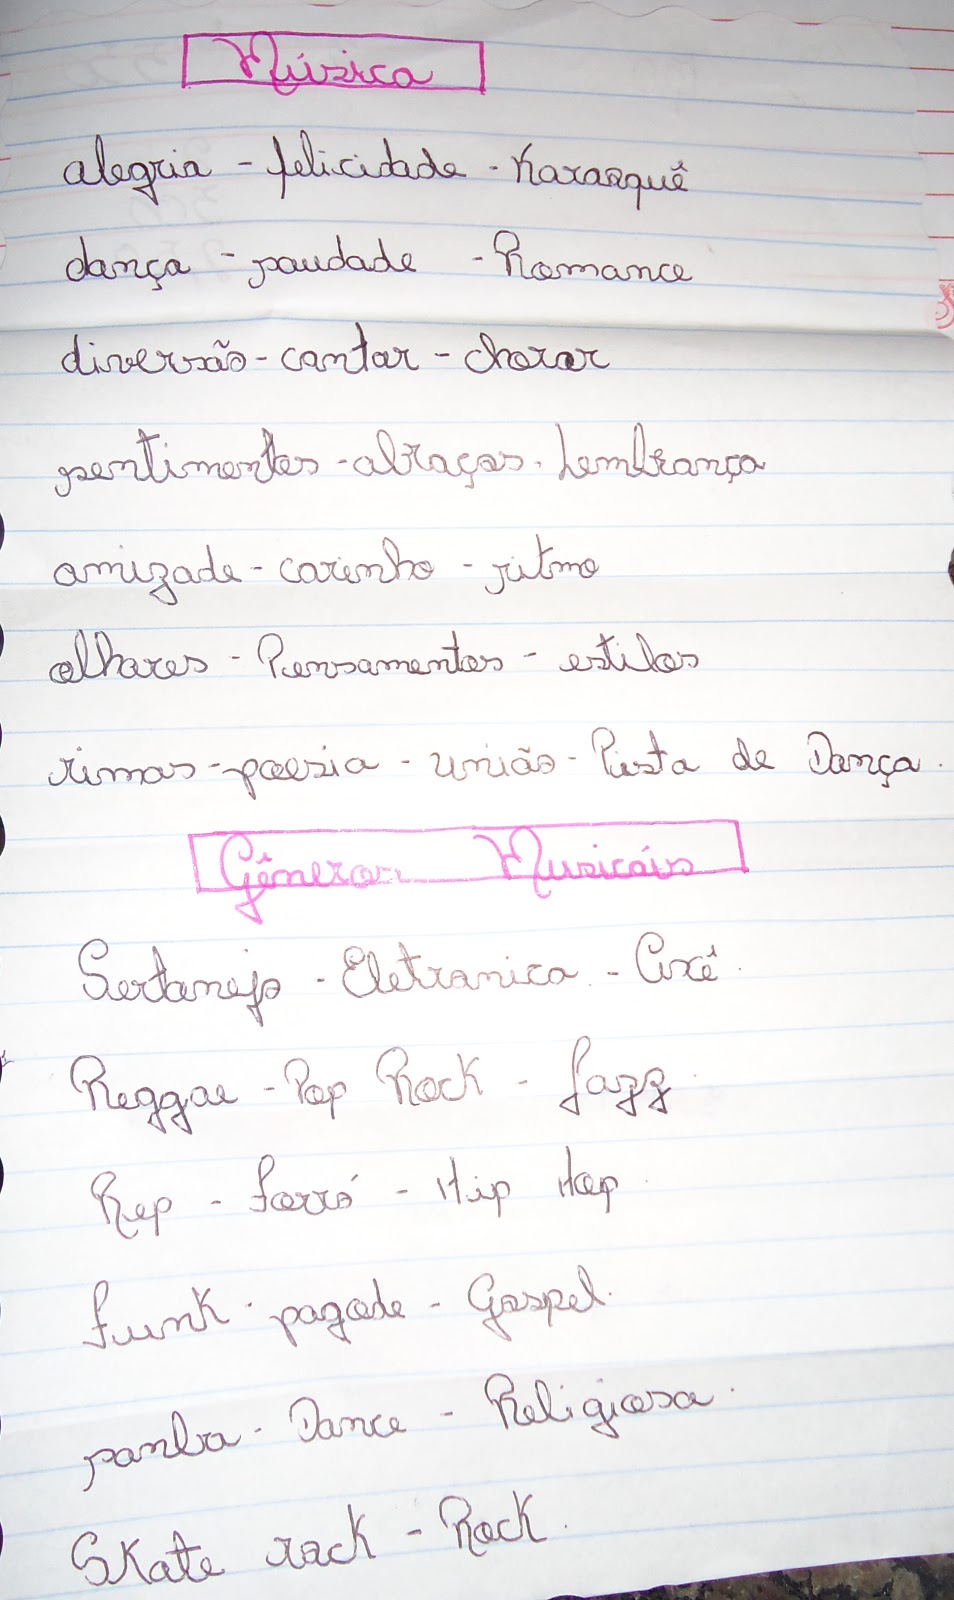 Música
alegria - felicidade - Karaoquê
dança - saudade - Romance
diversão - cantar - chorar
sentimentos - abraços - Lembrança
amizade - carinho - ritmo
olhares - Pensamentos - estilos
rimas - poesia - união - Pista de Dança.
Gêneros Musicáis
Sertanejo - Eletranica - Axé.
Reggae - Pop Rock - Jazz.
Rep - Forró - Hip Hop.
Funk - pagode - Gospel.
samba - Dance - Religiosa.
Skate rock - Rock.